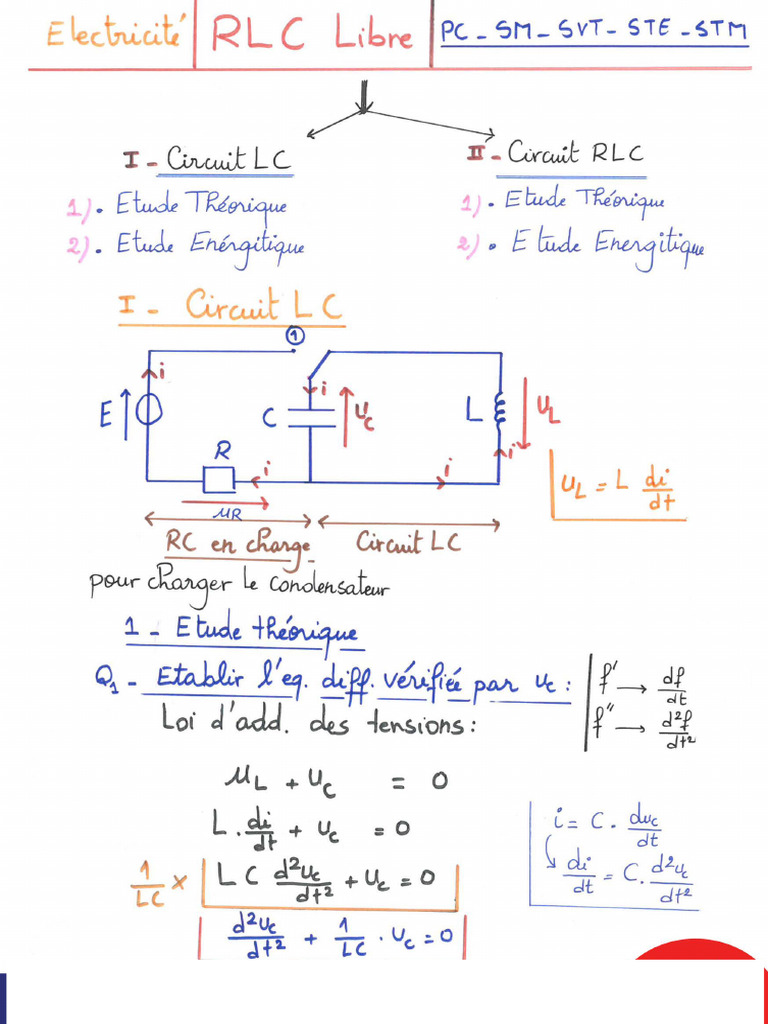 Electricité | RLC Libre | PC - SM - SVT - STE - STM
I - Circuit LC
1). Etude Théorique
2). Etude Enérgitique
II - Circuit RLC
1). Etude Théorique
2). Etude Energitique
I - Circuit LC
1
i
E
C
i
Uc
L
UL
R
i
i
i
uR
UL = L di/dt
RC en charge
Circuit LC
pour charger le condensateur
1 - Etude théorique
Q1 - Etablir l'eq. diff. vérifiée par uc :
f' → df/dt
f'' → d²f/dt²
Loi d'add. des tensions :
uL + Uc = 0
L . di/dt + Uc = 0
i = C . duc/dt
di/dt = C . d²uc/dt²
1/LC × | LC d²uc/dt² + Uc = 0
d²uc/dt² + 1/LC . Uc = 0